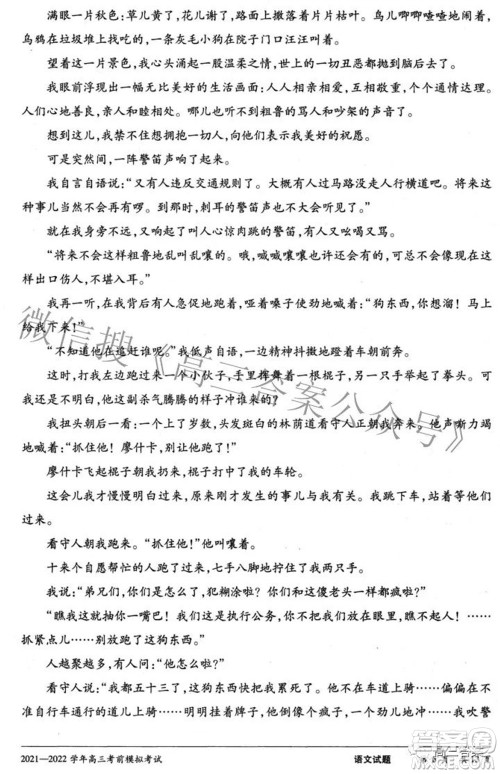 满眼一片片景色:草儿黄了,花儿谢了,路面上撒落着片片枯叶。鸟儿唧唧喳喳地闹着,
乌鸦在垃圾堆上找吃的,一条灰毛小狗在院子门口汪汪叫着。
望着这一片景色,我心头涌起一股温柔之情,世上的一切丑恶都抛到九霄云外去了。
我眼前浮现出一幅无比美好的生活画面:人人相亲相爱,互相体谅,个个通情达理。
人们心地善良,亲人和睦相处。哪儿也听不到粗鲁的骂人和吵架的声音了。
想到这儿,我禁不住想拥抱一切人,向他们表示我美好的祝愿。
可是突然间,一阵警笛声响了起来。
我自言自语说:“又有人违反交通规则了。大概有人过马路没走人行横道吧。将来这
种事儿当然不会再有。到那时,刺耳的警笛声也不会再有了。”
就在我身旁不远,又响起了叫人心惊肉跳的警笛声,有人又吆喝又骂。
“将来不会这样粗鲁地乱叫乱嚷的。哦,喊喊嚷嚷也许还会有,但无论如何不会像这
样出口伤人,不堪入耳。”
我再一听,好像背后有人急促地跑着,哑着嗓子使劲地喊着:“狗东西,你想溜!马上
给我下来!”
“不知道他在追赶谁呢。”我低声自语,一边精神抖擞地蹬着车朝前奔。
这时,打我左边跑过来一个小伙子,手里挥舞着一根棍子,另一只手举起了拳头。可
我还是不明白,他这副杀气腾腾的样子冲谁来的?
我扭头一看,后面来了个上了岁数、头发斑白的林荫道看守人朝我奔来,他声嘶力竭
地喊着:“抓住他!廖什卡,别让他跑了。”
廖什卡飞起棍子朝我扔来,棍子打中了我的车轮。
这会儿我才慢慢明白过来,原来刚才发生的事儿与我有关。我跳下车,站着等他们
过来。
看守人朝我跑来。“抓住他!”他叫嚷着。
十来个自愿帮忙的人跑了过来,七手八脚地拧住了我两只手。
我说:“弟兄们,你们是怎么了,犯糊涂啦!你们和这个傻老头一样都疯啦?”
“瞧我这就抽你一嘴巴!我们是执行公务,你不要不把我们放在眼里,瞧不起人!……
抓紧点儿……别放跑了这狗东西。”
人越聚越多,有人问:“他怎么啦?”
看守人说:“诸位,我都五十三了,这狗东西快把我累死了。他不走他该走的道……
他在人行道上骑……明明那儿挂着牌子,不准骑自行车……可这家伙偏偏在不
准骑车的道儿上骑……我吹警
2021—2022学年高三考前模拟考试
语文试题
微信搜《高三答案公众号》